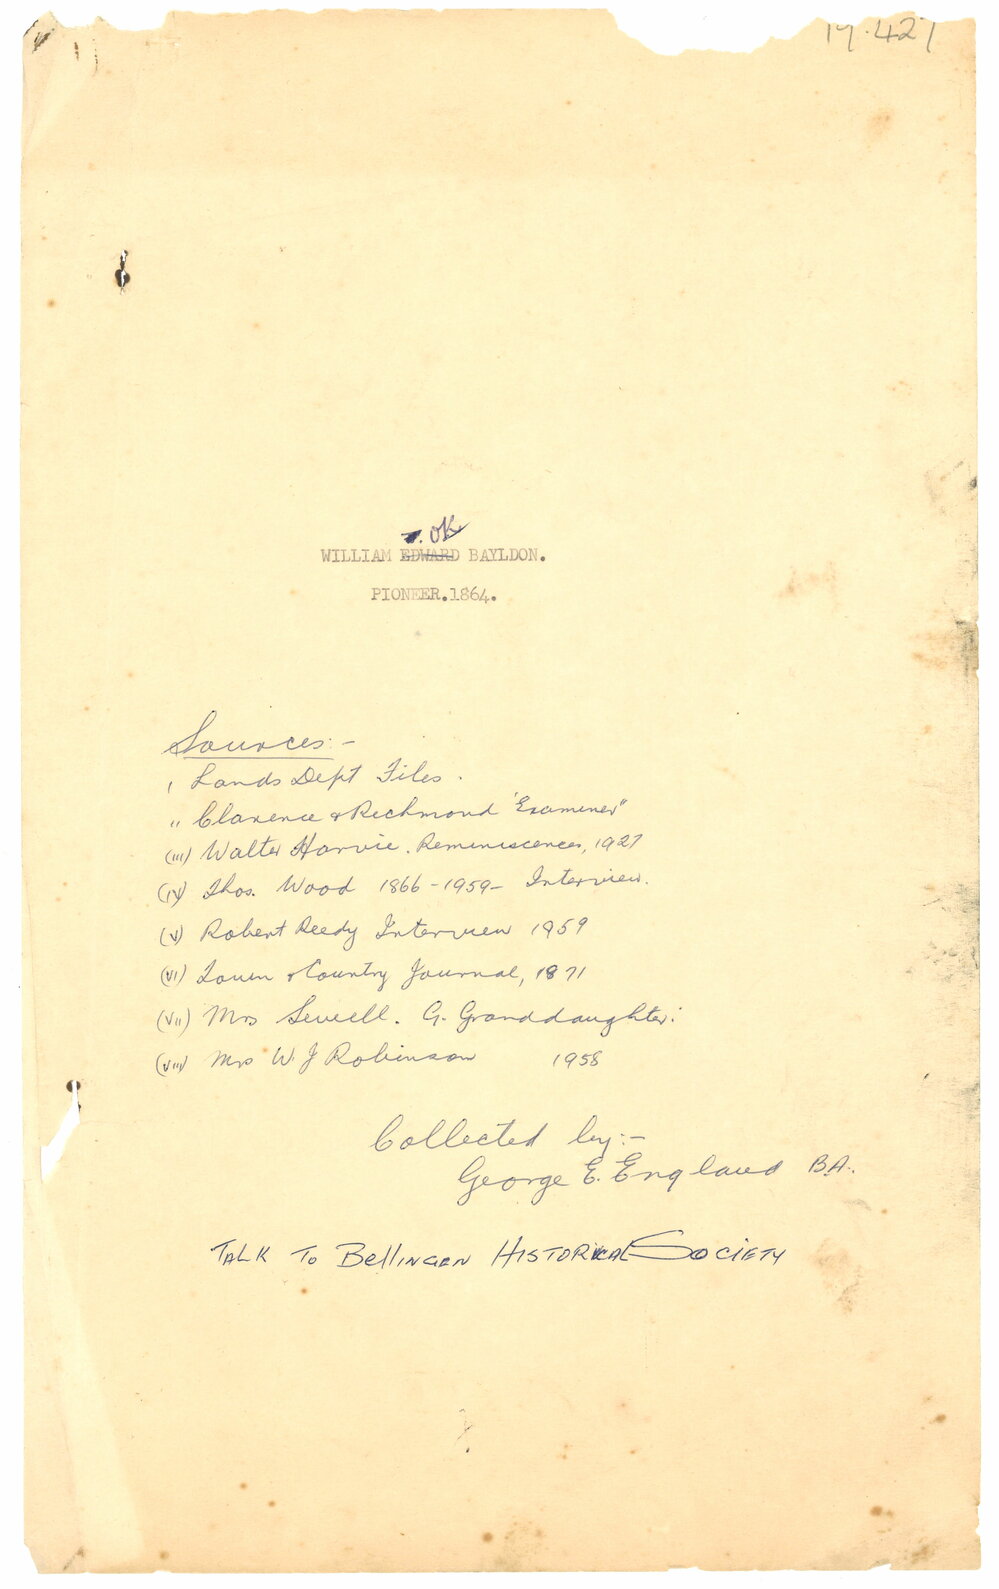 19.427
OK
WILLIAM EDWARD BAYLDON.
PIONEER.1864.
Sources:-
ı Lands Dept Files.
ıı Clarence & Richmond 'Examiner"
(iii) Walter Harvie. Reminiscences, 1927
(iv) Thos. Wood 1866-1959- Interview.
(v) Robert Reedy Interview 1959
(vi) Town & Country Journal, 1871
(vii) Mrs Sewell. G. Granddaughter:
(viii) Mrs W J Robinson 1958
Collected by:-
George E. England BA.
TALK TO BellINGEN HISTORICAL SOCIETY